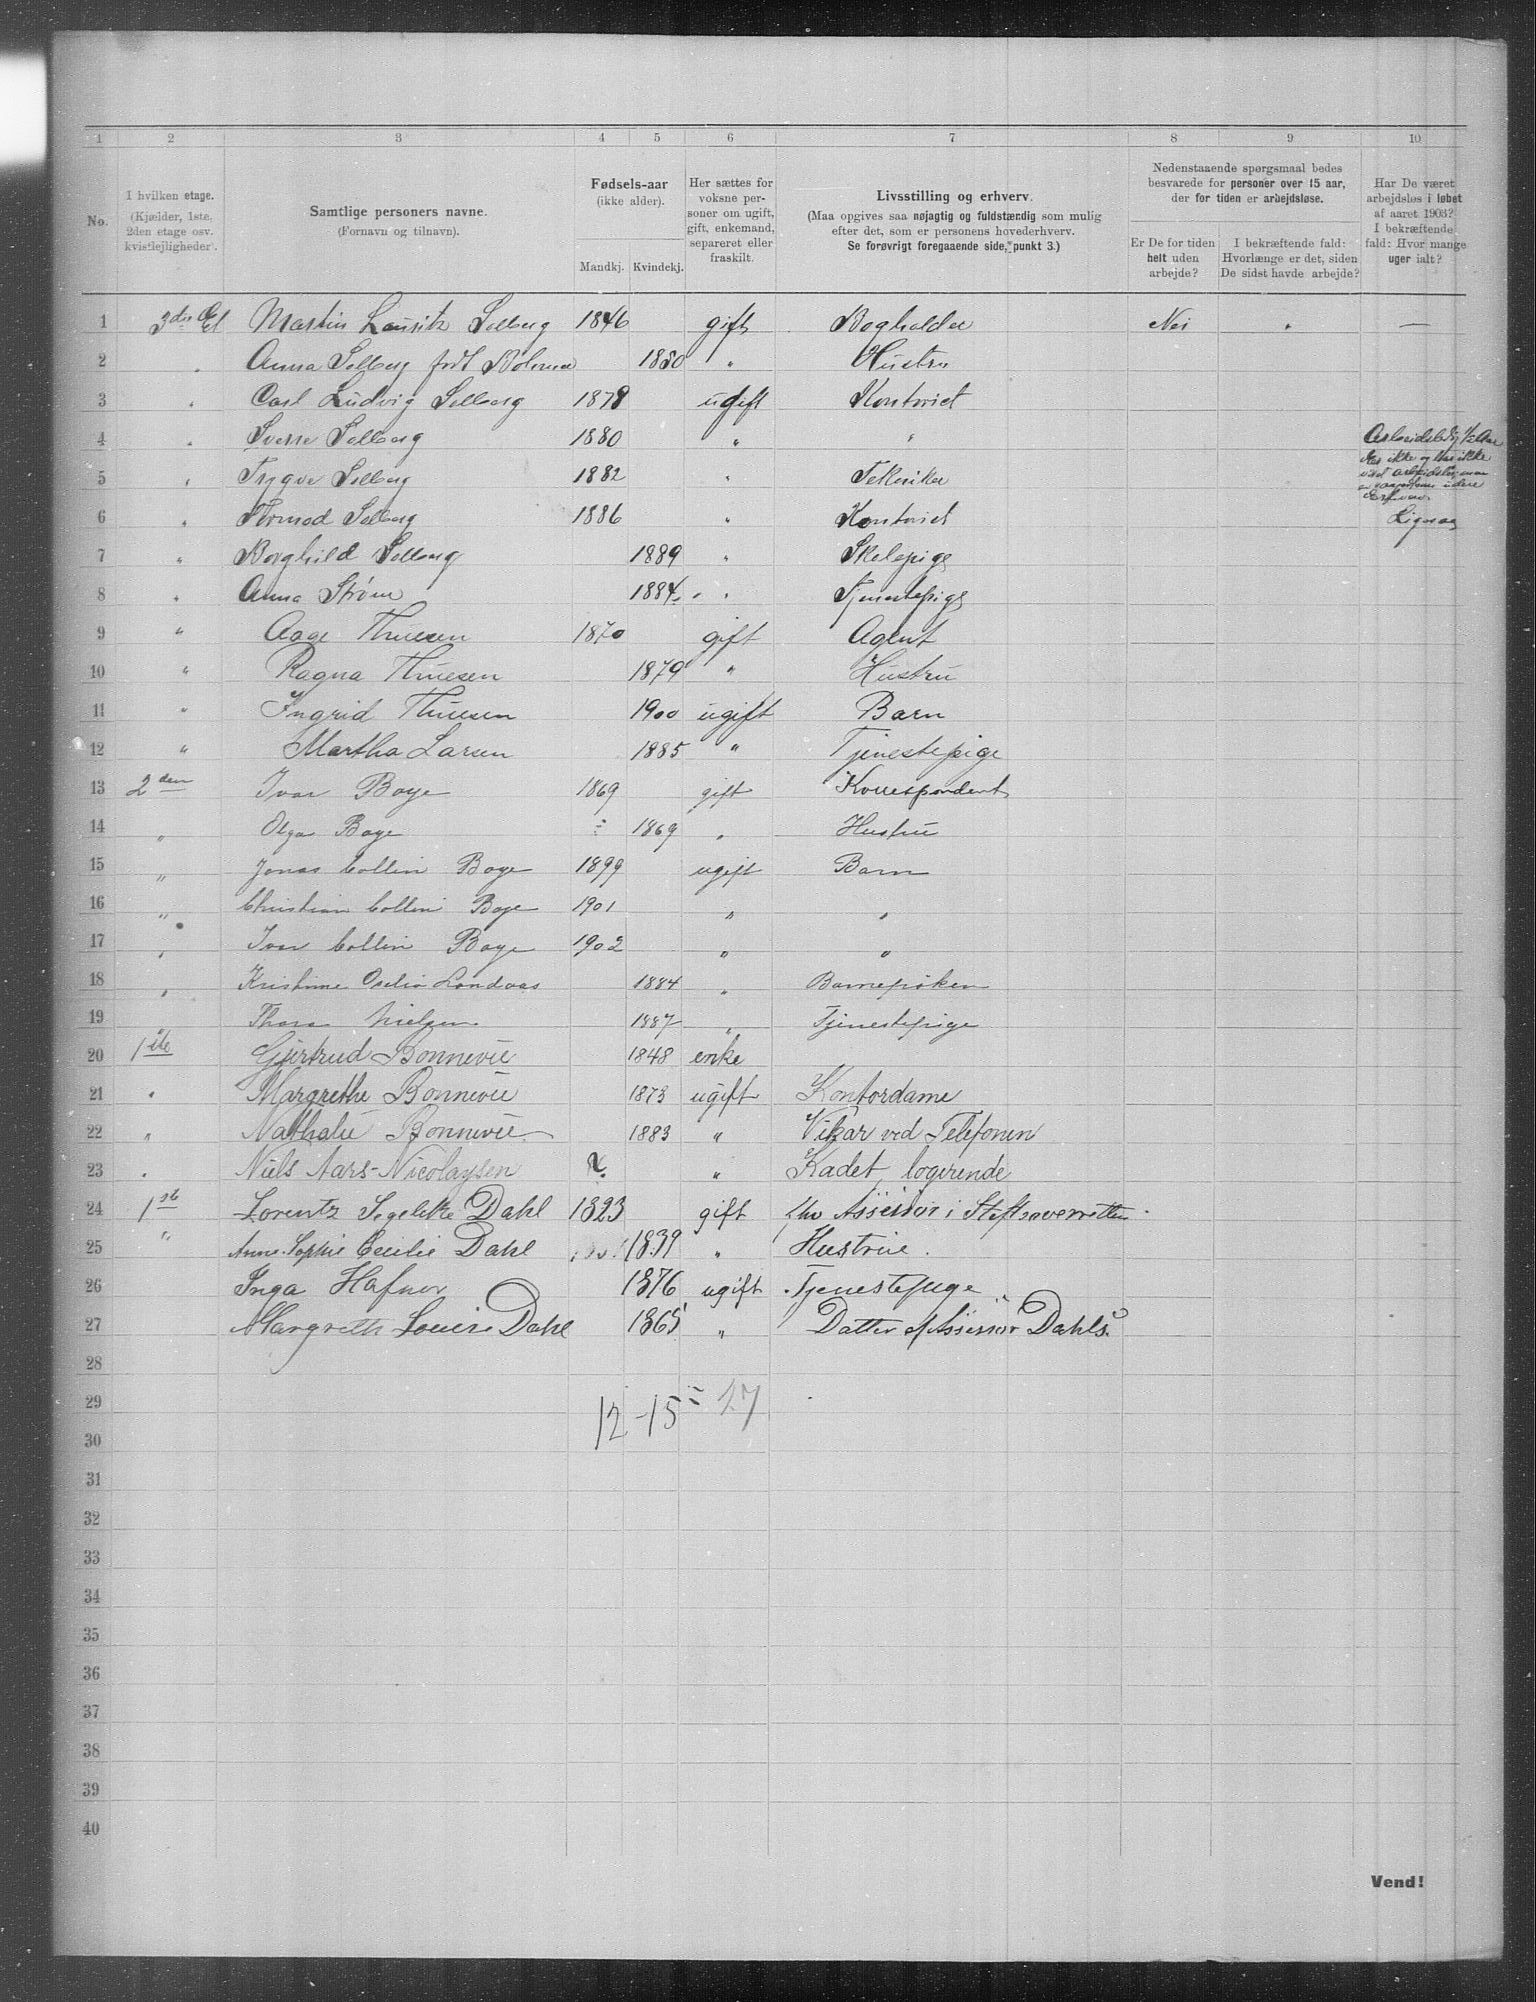 1 2 3 4 5 6 7 8 9 10
No.
I hvilken etage.
(Kjælder, 1ste,
2den etage osv.
kvistlejligheder).
Samtlige personers navne.
(Fornavn og tilnavn).
Fødsels-aar
(ikke alder).
Mandkj. Kvindekj.
Her sættes for
voksne per-
soner om ugift,
gift, enkemand,
separeret eller
fraskilt.
Livsstilling og erhverv.
(Maa opgives saa nøjagtig og fuldstændig som mulig
efter det, som er personens hovederhverv.
Se forøvrigt foregaaende side, punkt 3.)
Nedenstaaende spørgsmaal bedes
besvarede for personer over 15 aar,
der for tiden er arbejdsløse.
Er De for tiden
helt uden
arbejde?
I bekræftende fald:
Hvorlænge er det, siden
De sidst havde arbejde?
Har De været
arbejdsløs i løbet
af aaret 1903?
I bekræftende
fald: Hvor mange
uger ialt?
1 3die Et Martin Lauritz Solberg 1846 gift Bogholder Nei " —
2 " Anna Solberg født 1850 " Hustru
3 " Carl Ludvig Solberg 1878 ugift Kontorist
4 " Sverre Solberg 1880 " " Arbeidsledig 1/2 Aar
5 " Trygve Solberg 1882 " Tekniker
6 " Tormod Solberg 1886 " Kontorist
7 " Borghild Solberg 1889 " Skolepige
8 " Anna Strøm 1884 " Tjenestepige
9 " Aage Thuesen 1870 gift Agent
10 " Ragna Thuesen 1879 " Hustru
11 " Ingrid Thuesen 1900 ugift Barn
12 " Martha Larsen 1885 " Tjenestepige
13 2den Ivar Boye 1869 gift Korrespondent
14 " Olga Boye 1869 " Hustru
15 " Jonas Collin Boye 1899 ugift Barn
16 " Christian Collin Boye 1901 " "
17 " Ivar Collin Boye 1902 " "
18 " Kristine Oselio Landaas 1884 " Barnepiken
19 Thora Nielsen 1887 " Tjenestepige
20 1ste Gjertrud Bonnevie 1848 enke
21 " Margrethe Bonnevie 1873 ugift Kontordame
22 " Nathalie Bonnevie 1883 " Vikar ved Telefonen
23 " Niels Aars-Nicolaysen " Kadet, logerende
24 1ste Lorentz Segelcke Dahl 1823 gift fhv Assessor i Stiftsoverretten
25 " Anne Sophie Cecilie Dahl 1839 " Hustrue.
26 Inga Hafnor 1876 ugift Tjenestepige
27 Margreth Louise Dahl 1865 " Datter af Assessor Dahls.
28
29 12 - 15 = 27
30
31
32
33
34
35
36
37
38
39
40
Vend!